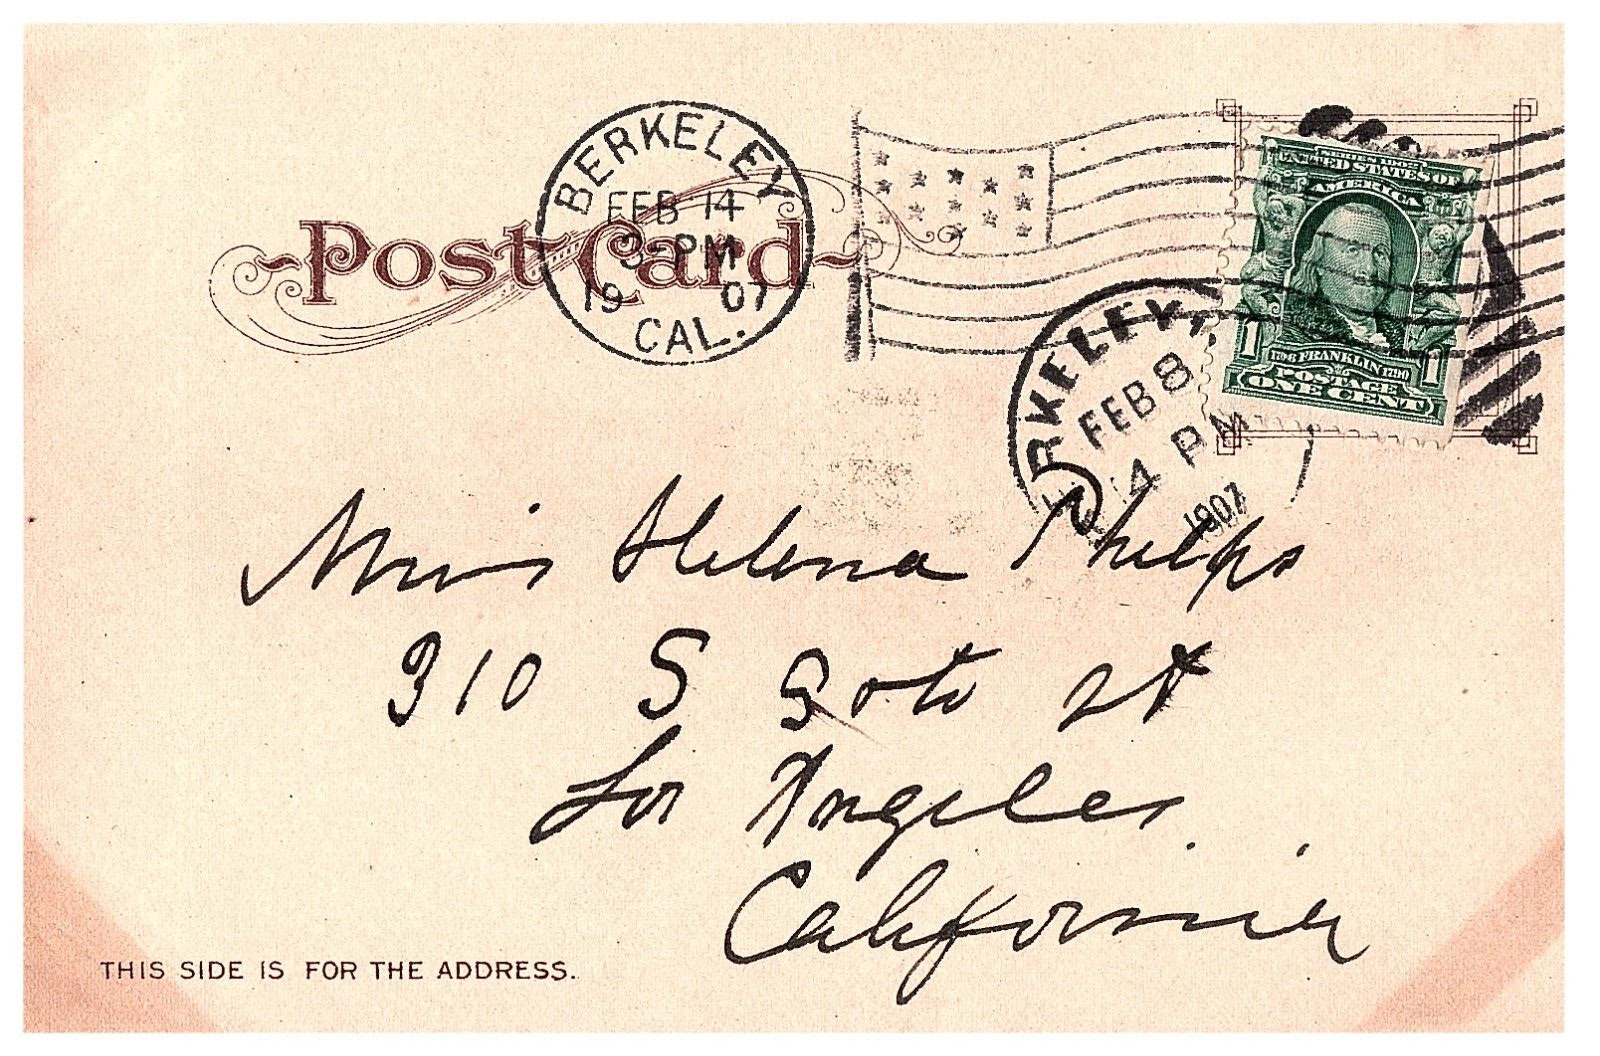 Post Card
BERKELEY
FEB 14
3-PM
19 07
CAL.
SERIES 1902
UNITED STATES OF
AMERICA
1706 FRANKLIN 1790
POSTAGE
1 ONE CENT 1
RKELEY,
FEB 8
4 PM
1907
Miss Helena Phelps
310 S Soto St
Los Angeles
California
THIS SIDE IS FOR THE ADDRESS.